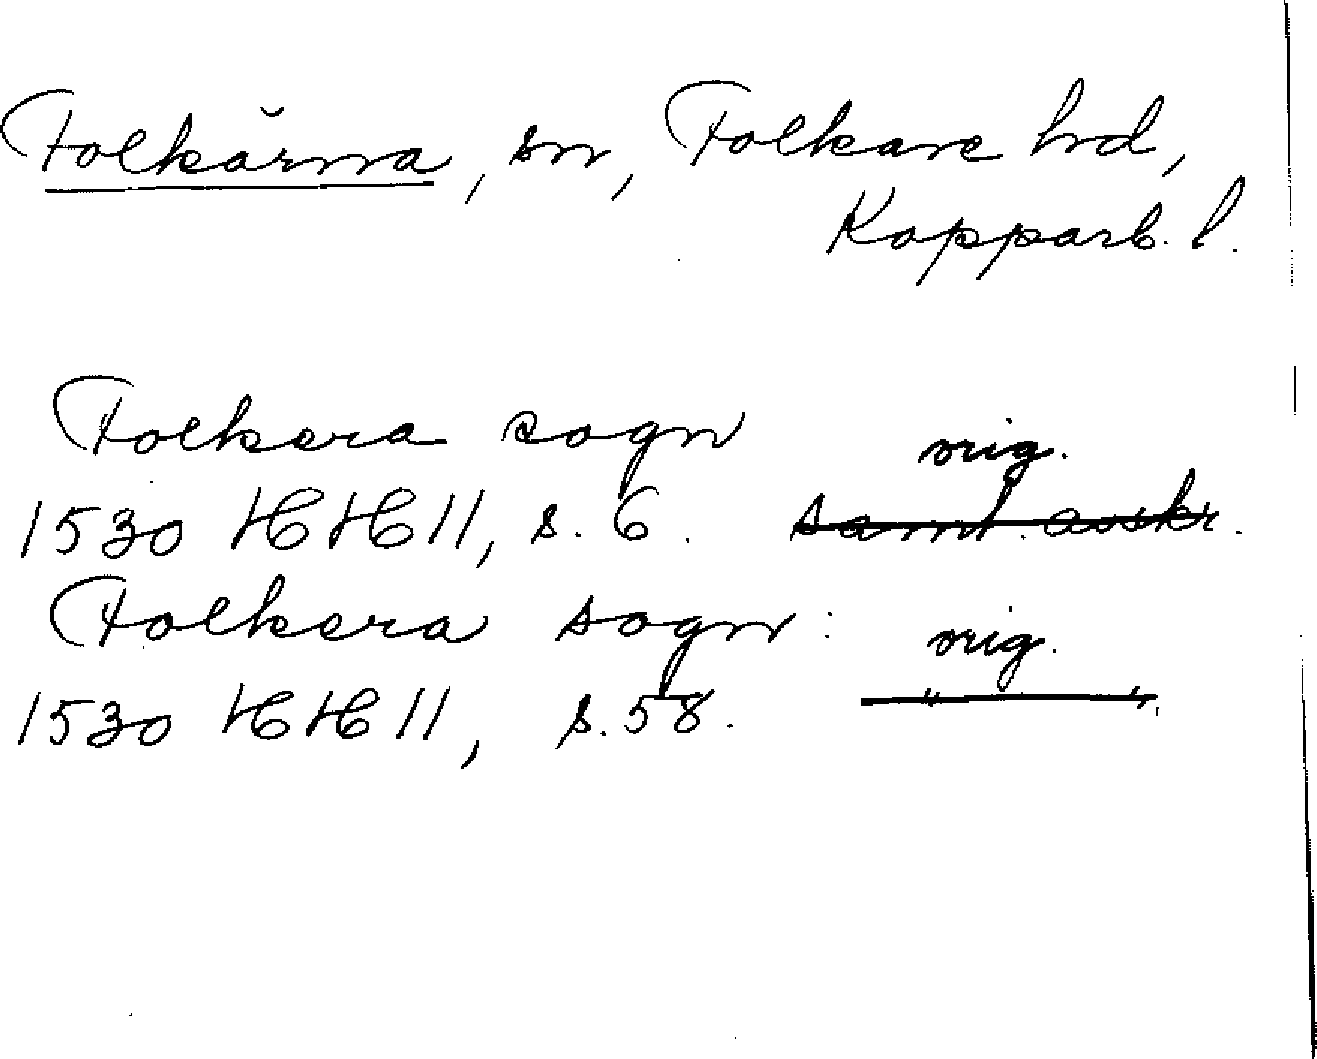 Folkärna, sn, Folkare hd,
Kopparb. l.
Folkera sogn
orig.
1530 HH II, s. 6. samt. avskr.
Folkera sogn:
orig.
1530 HH II, s. 58. " "